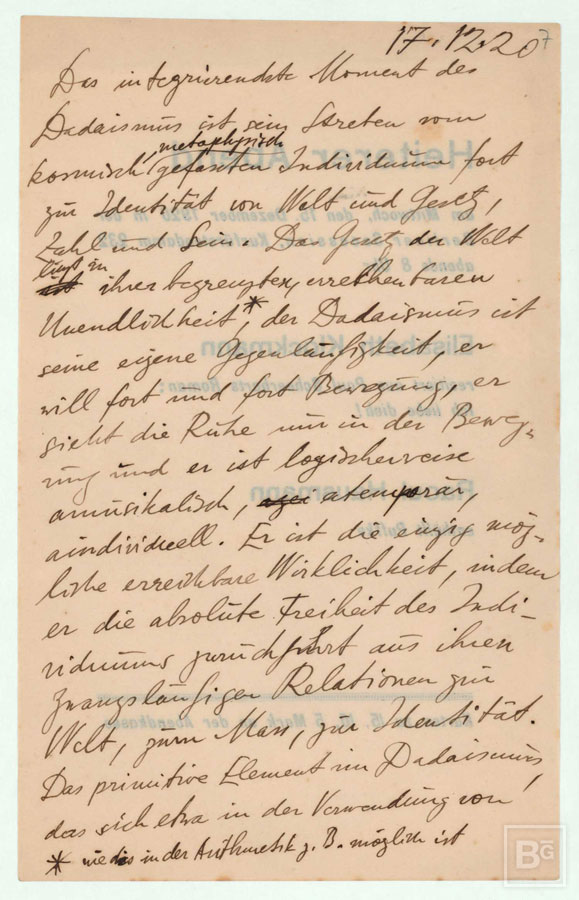 17.12.20
7
Das integrierendste Moment des
Dadaismus ist sein Streben vom
metaphysisch
kosmisch, gefassten Individuum fort
zur Identität von Welt und Gesetz,
Zahl und Sein. Das Gesetz der Welt
liegt in
ist ihrer begrenzten, errechenbaren
Unendlichkeit*, der Dadaismus ist
seine eigene Gegenläufigkeit, er
will fort und fort Bewegung, er
sieht die Ruhe nur in der Beweg-
ung und er ist logischerweise
amusikalisch, atemporär,
aindividuell. Er ist die einzig mög-
liche erreichbare Wirklichkeit, indem
er die absolute Freiheit des Indi-
viduums zurückführt aus ihren
zwangsläufigen Relationen zur
Welt, zum Mass, zur Identität.
Das primitive Element im Dadaismus,
das sich etwa in der Verwendung von
* wie dies in der Arithmetik z. B. möglich ist
Heiterer Abend
am Mittwoch, den 15. Dezember 1920 in der
abends 8
Elisabeth
Raoul Hausmann
5 Mark an der Abendkasse
BG